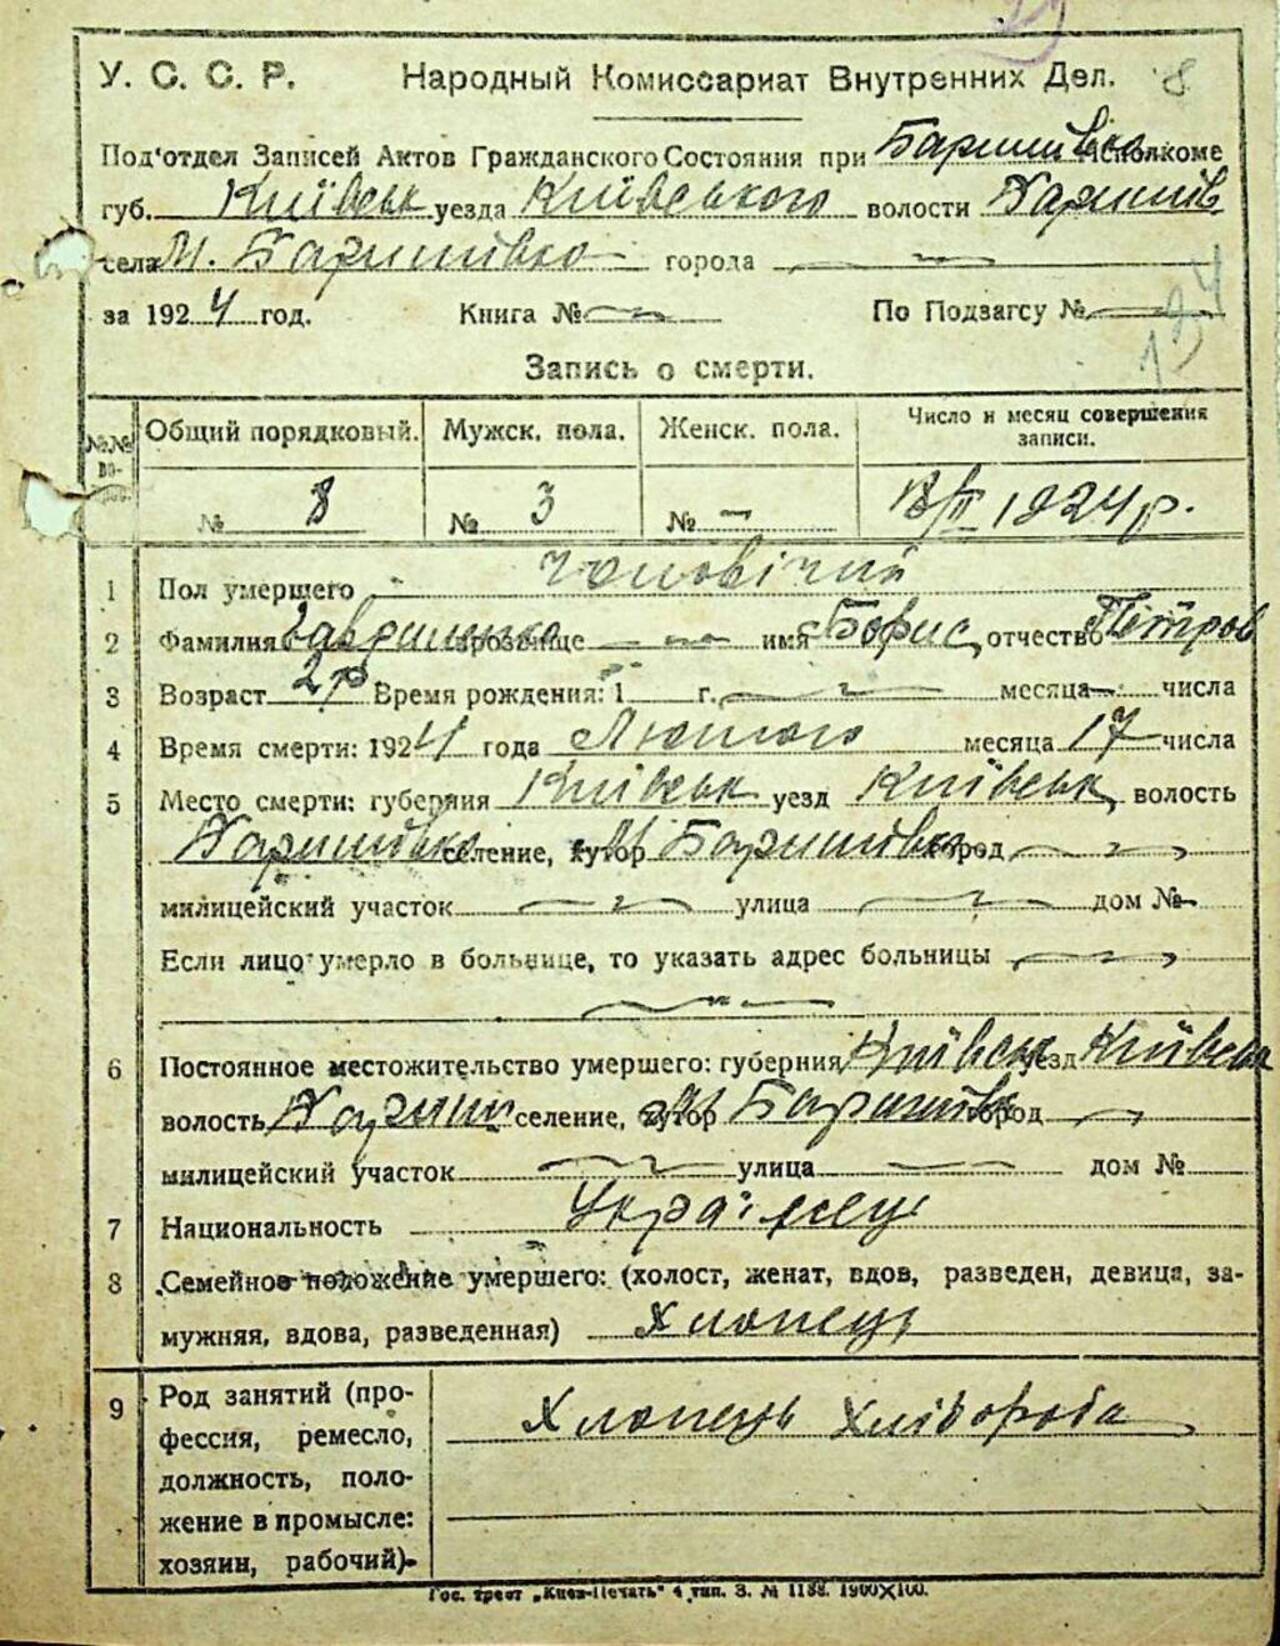 У. С. С. Р. Народный Комиссариат Внутренних Дел. 8
Под'отдел Записей Актов Гражданского Состояния при Баришівка Исполкоме
губ. Київськ уезда Київського волости Баришів
села М. Баришівка города
за 1924 год. Книга № По Подзагсу №
Запись о смерти.
№№ Общий порядковый. Мужск. пола. Женск. пола. Число и месяц совершения записи.
№ 8 № 3 № — 18/II 1924 р.
1 Пол умершего чоловічий
2 Фамилия прозвище имя Борис, отчество Петров
3 Возраст 2 р. Время рождения: 1 г. месяца числа
4 Время смерти: 1924 года Лютого месяца 17 числа
5 Место смерти: губерния Київськ уезд Київськ, волость
Баришівка селение, хутор М Баришівка город
милицейский участок улица дом №
Если лицо умерло в больнице, то указать адрес больницы
6 Постоянное местожительство умершего: губерния Київськ уезд Київськ
волость Бариш селение, хутор М Баришівка город
милицейский участок улица дом №
7 Национальность Українець
8 Семейное положение умершего: (холост, женат, вдов, разведен, девица, за-
мужняя, вдова, разведенная) Хлопець
9 Род занятий (про-
фессия, ремесло,
должность, поло-
жение в промысле:
хозяин, рабочий).
Хлопець Хліборoба
Гос. трест „Киев-Печать" 4 тип. З. № 1188. 1900X100.